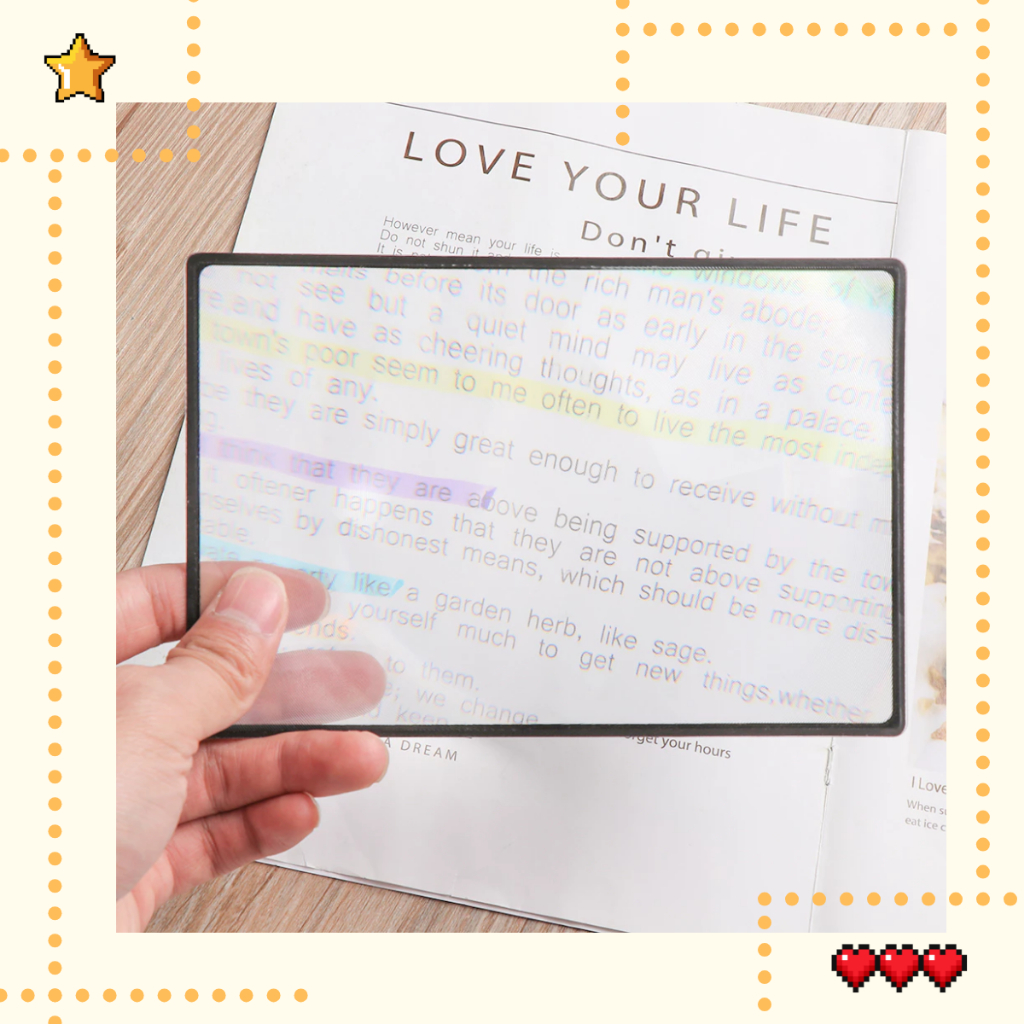 LOVE YOUR LIFE
Don't
However mean your life is
Do not shun it and
It is
the rich man's abode;
melts before its door as early in the spring
not see but a quiet mind may live as
and have as cheering thoughts, as in a palace.
town's poor seem to me often to live the most
lives of any.
they are simply great enough to receive without
think that they are above being supported by the
oftener happens that they are not above supporting
by dishonest means, which should be more dis-
like a garden herb, like sage.
yourself much to get new things,whether
to them.
we change
keep
A DREAM
your hours
I Love
When
eat ice